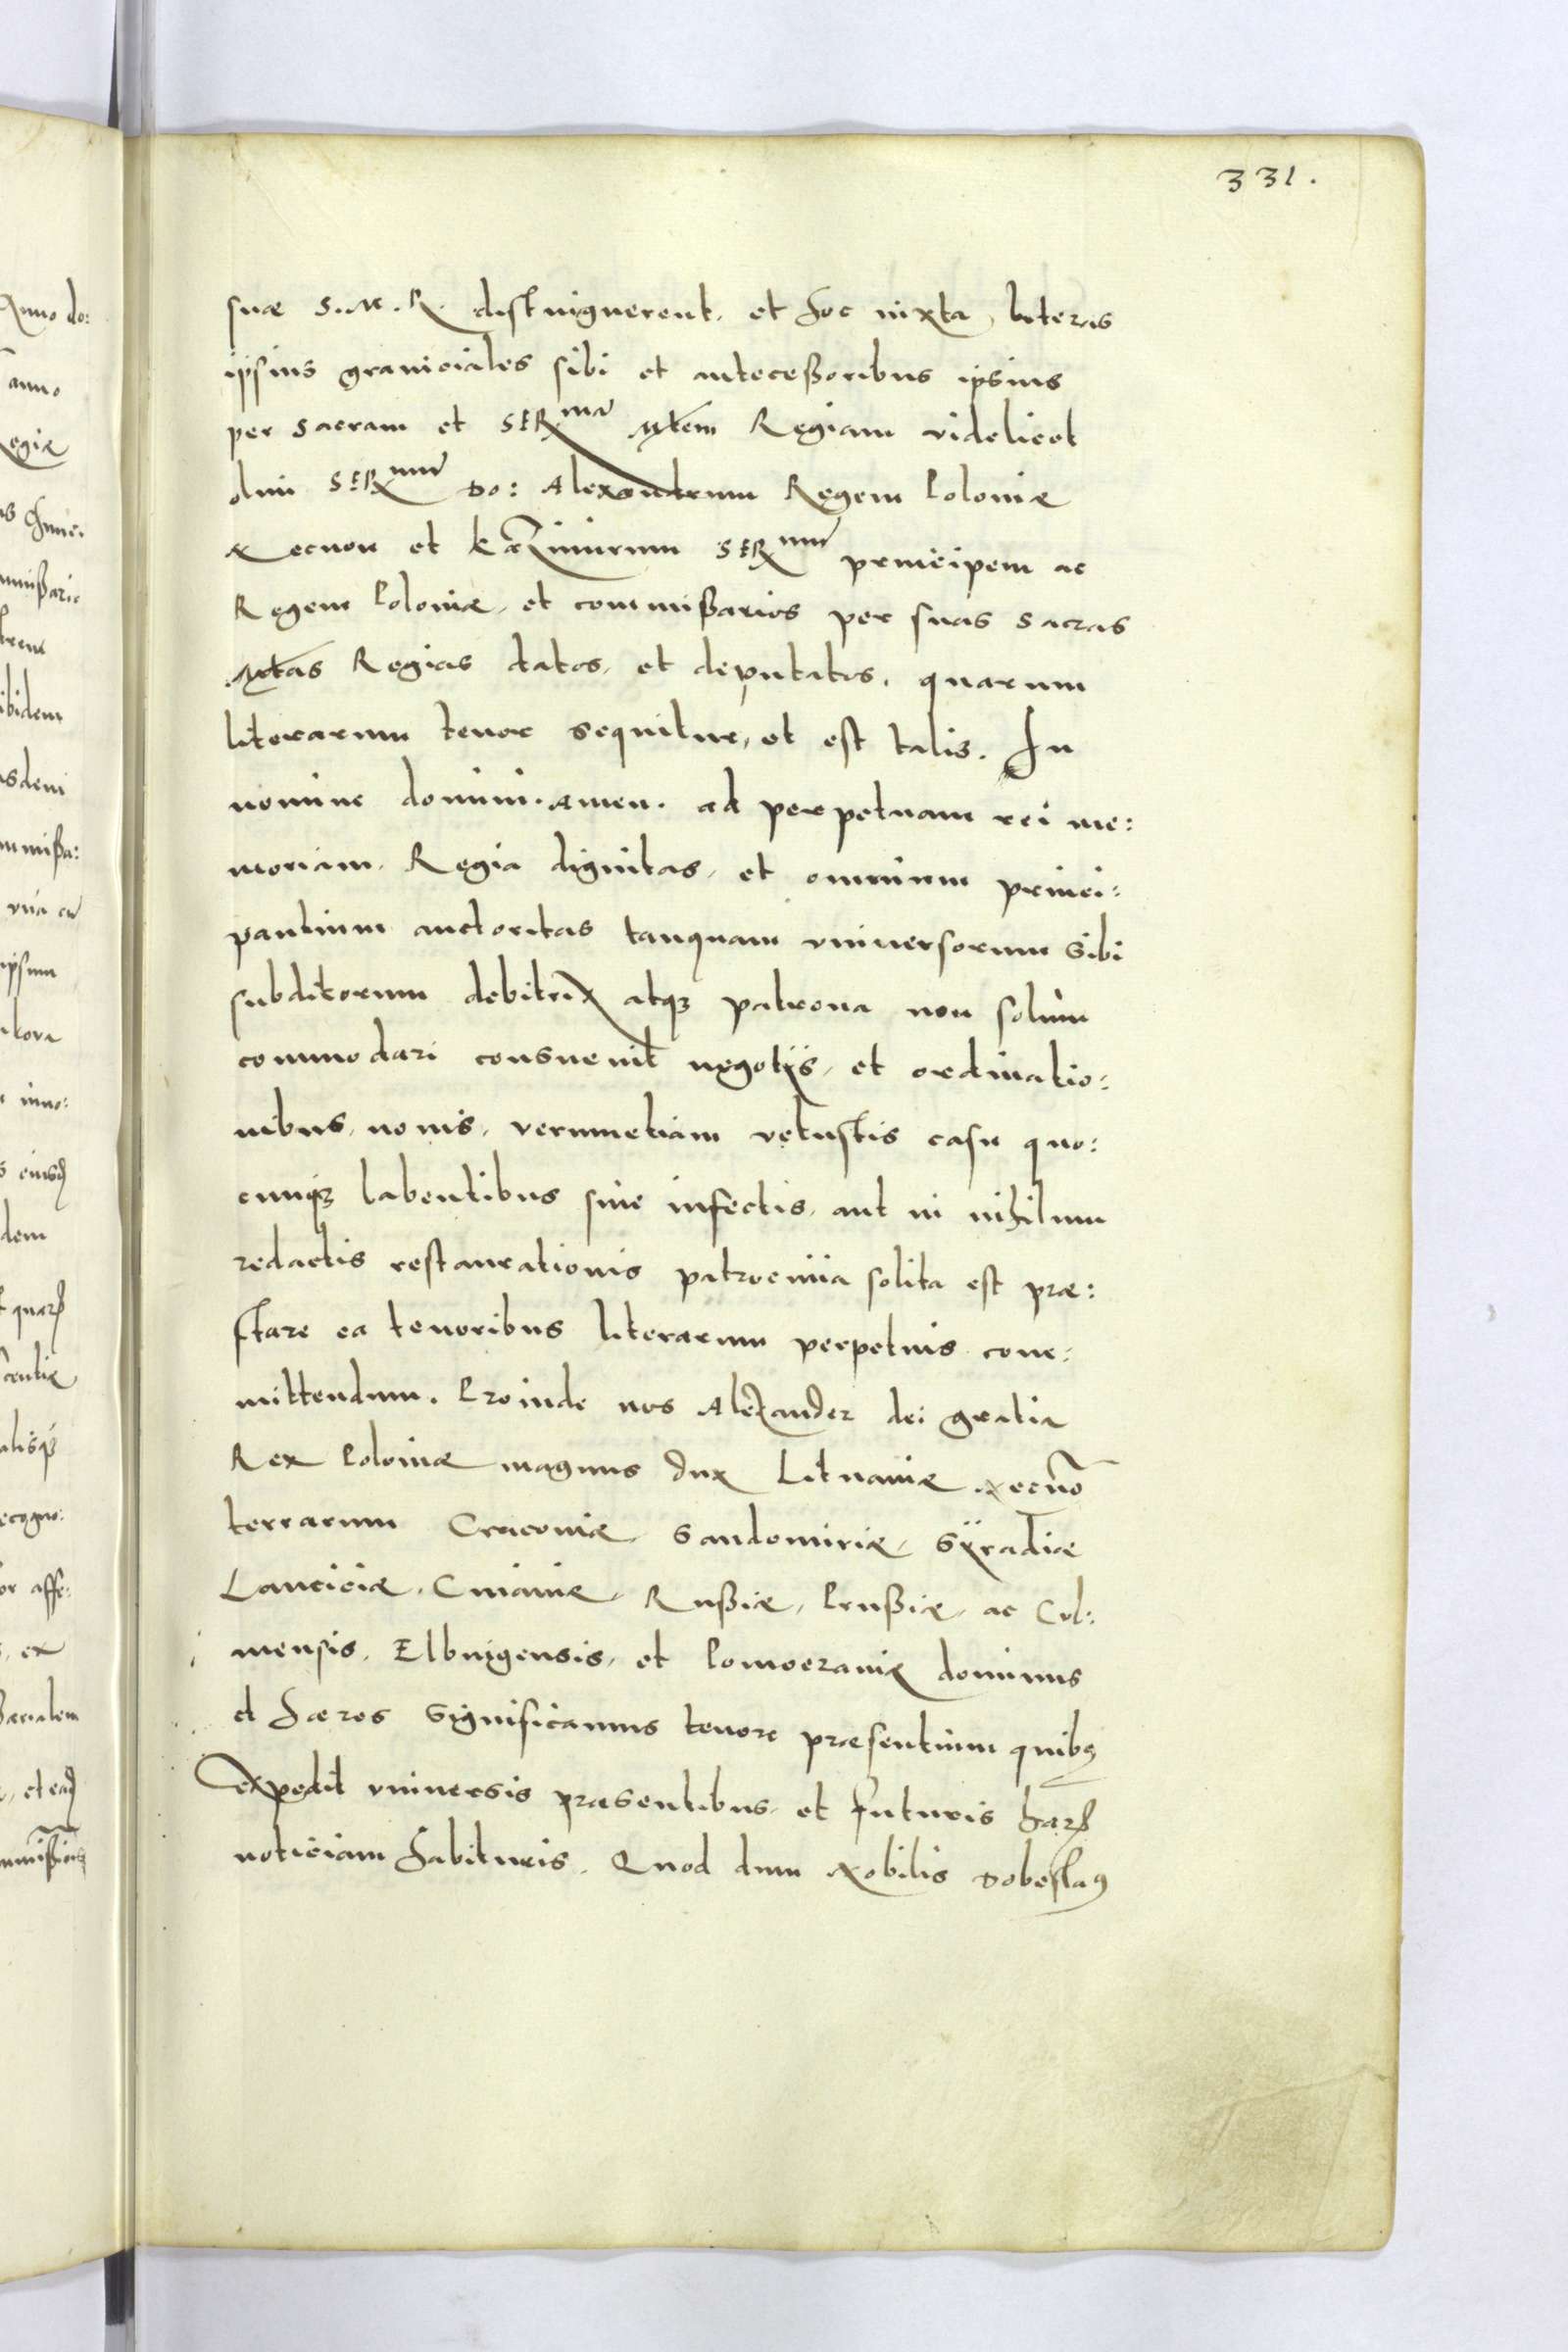 331.
suæ S. M. R. distinguerent, et hoc iuxta literas
ipsius graniciales sibi et antecessoribus ipsius
per sacram et SERmā Mtem Regiam videlicet
olim SERmū Do: Alexandrum Regem Poloniæ
Necnon et Kazimirum SERmū principem ac
Regem Poloniæ, et commissarios per suas sacras
Mtas Regias datos, et deputatos, quarum
literarum tenor sequitur, et est talis. In
nomine domini. amen. ad perpetuam rei me:
moriam. Regia dignitas, et omnium princi:
pantium auctoritas tanquam vniuersorum sibi
subditorum debitrix atqz patrona non solùm
commodari consueuit negotijs, et ordinatio:
nibus, nouis, verumetiam vetustis casu quo:
cunqz labentibus siue infectis, aut in nihilum
redactis restaurationis patrocinia solita est præ:
stare ea tenoribus literarum perpetuis com:
mittendum. Proinde nos Alexander dei gratia
Rex Poloniæ magnus dux Lituaniæ Necnō
terrarum Cracoviæ, Sandomiriæ, Syradiæ
Lanciciæ, Cuiauiæ, Russiæ, Prussiæ, ac Cul:
mensis, Elbingensis, et Pomoeraniæ dominus
et hæres significamus tenore præsentium quibꝰ
expedit vniuersis præsentibus, et futuris harꝝ
noticiam habituris. Quod dum Nobilis Dobeslaꝰ